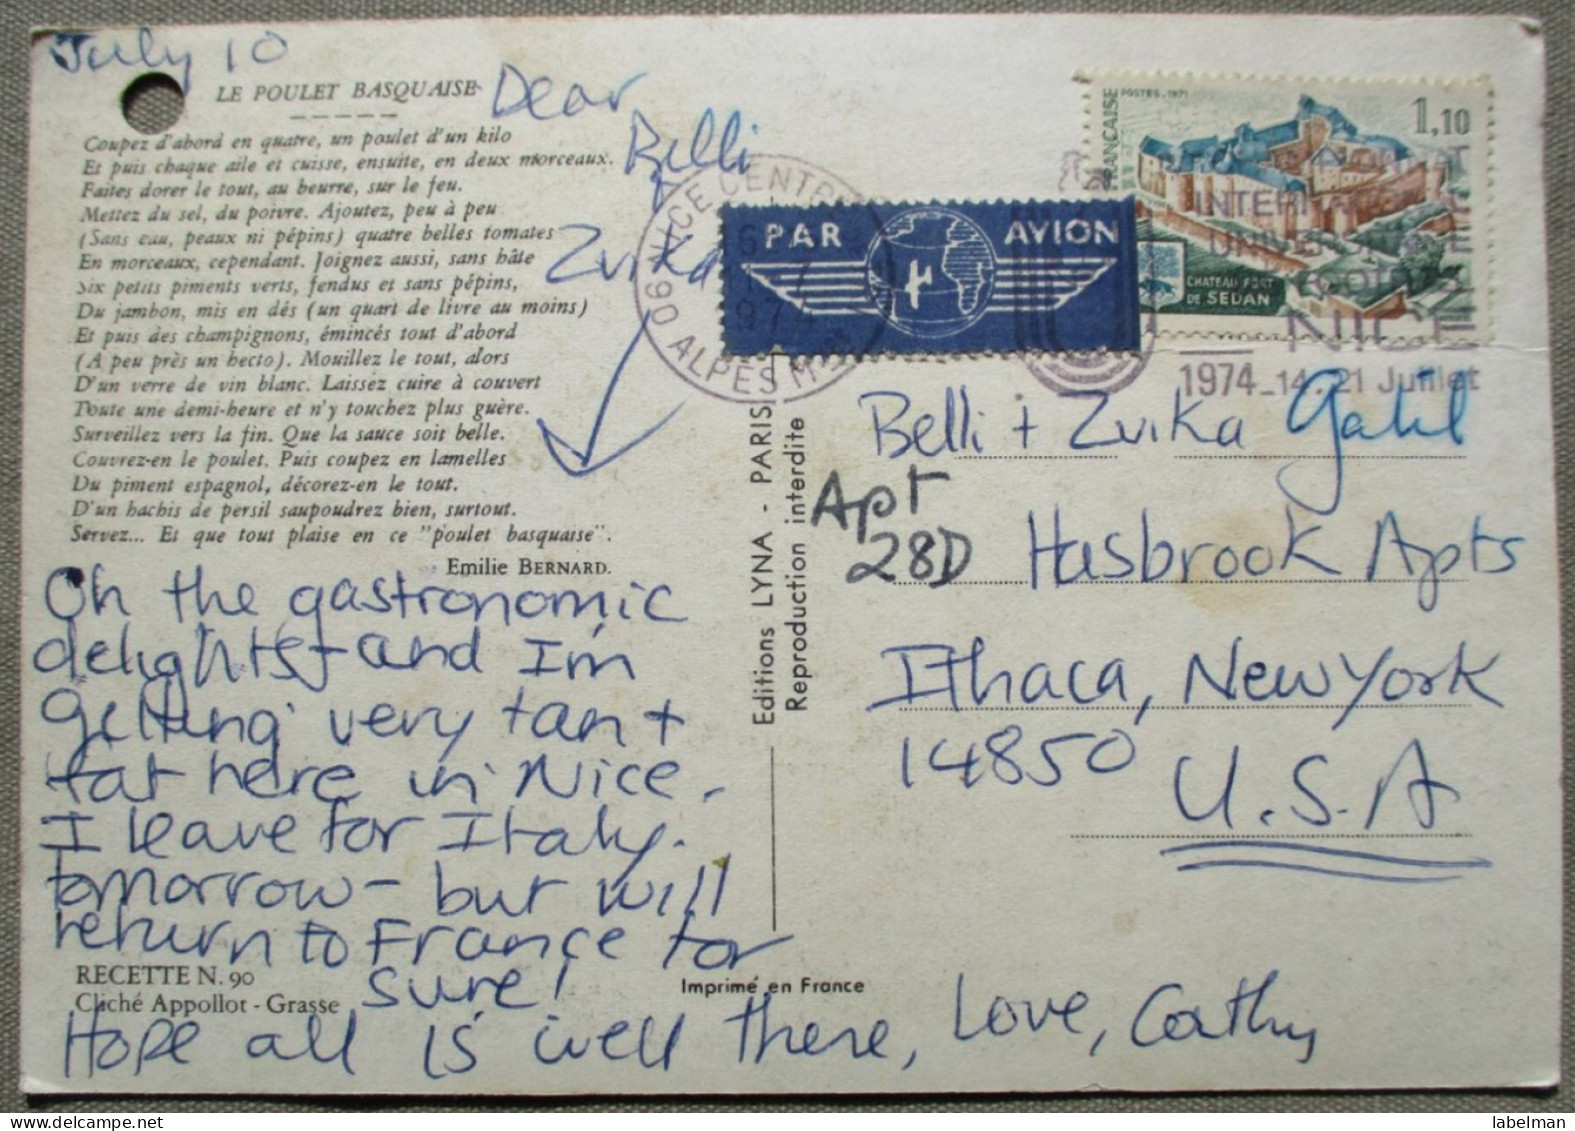 July 10
LE POULET BASQUAISE
Dear
Belli
+
Zvika
Coupez d'abord en quatre, un poulet d'un kilo
Et puis chaque aile et cuisse, ensuite, en deux morceaux.
Faites dorer le tout, au beurre, sur le feu.
Mettez du sel, du poivre. Ajoutez, peu à peu
(Sans eau, peaux ni pépins) quatre belles tomates
En morceaux, cependant. Joignez aussi, sans hâte
Six petits piments verts, fendus et sans pépins,
Du jambon, mis en dés (un quart de livre au moins)
Et puis des champignons, émincés tout d'abord
(A peu près un hecto). Mouillez le tout, alors
D'un verre de vin blanc. Laissez cuire à couvert
Toute une demi-heure et n'y touchez plus guère.
Surveillez vers la fin. Que la sauce soit belle.
Couvrez-en le poulet. Puis coupez en lamelles
Du piment espagnol, décorez-en le tout.
D'un hachis de persil saupoudrez bien, surtout.
Servez... Et que tout plaise en ce "poulet basquaise".
Emilie BERNARD.
Oh the gastronomic
delights - and I'm
getting very tan +
fat here in Nice.
I leave for Italy
tomorrow - but will
return to France for
sure!
RECETTE N. 90
Cliché Appollot - Grasse
Hope all is well there, Love, Cathy
Imprimé en France
Editions LYNA - PARIS
Reproduction interdite
NICE CENTRE
06 ALPES Mmes
PAR AVION
FRANÇAISE
POSTES.1971
1,10
CHATEAU FORT
DE SEDAN
NICE
1974_14_21 Juillet
Belli + Zvika Galil
Apt
28D
Hasbrook Apts
Ithaca, New York
14850
U.S.A